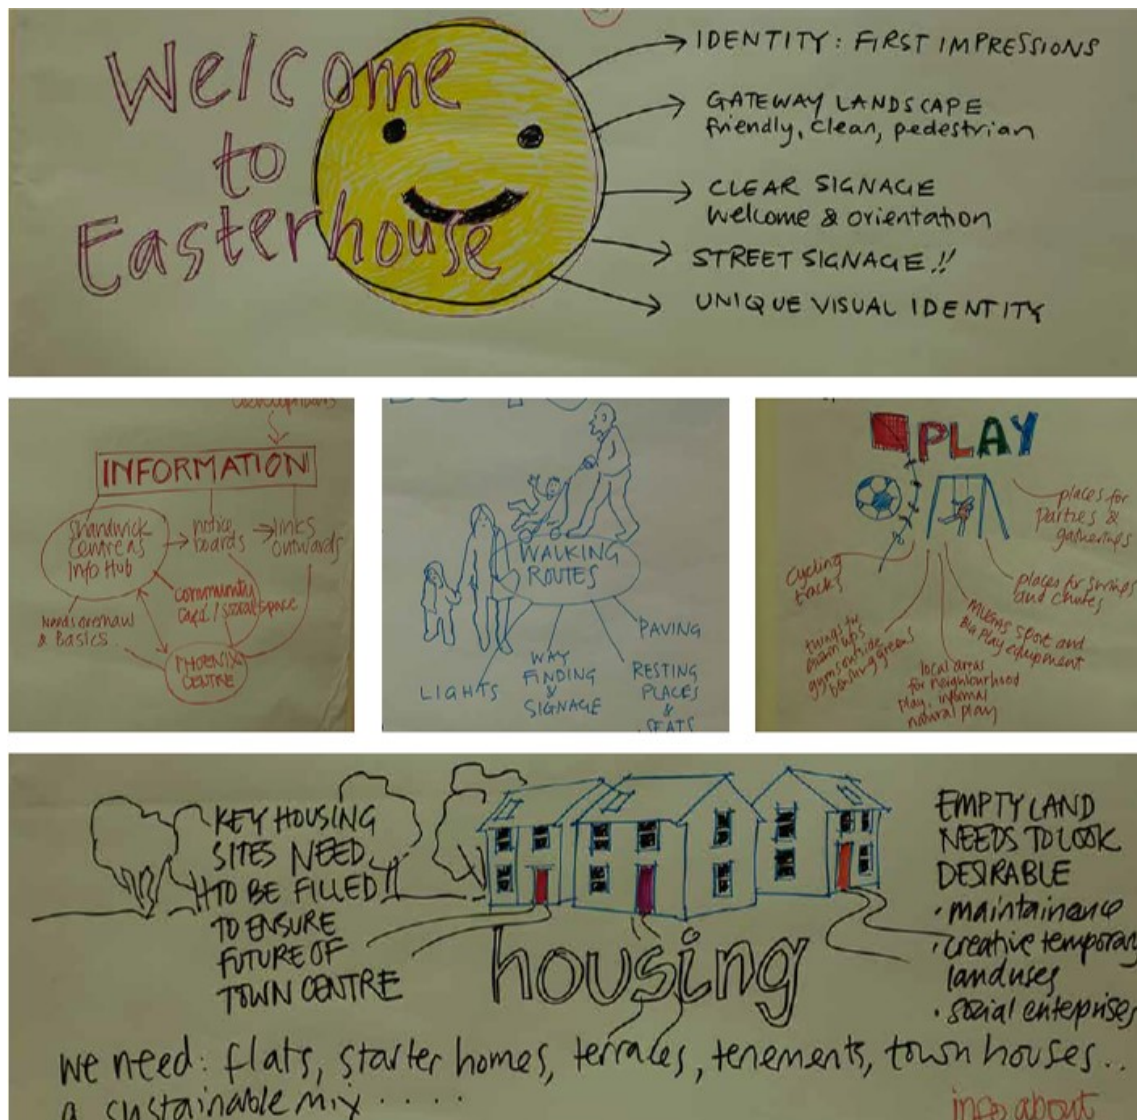 Welcome
to
Easterhouse
IDENTITY: FIRST IMPRESSIONS
GATEWAY LANDSCAPE
friendly, clean, pedestrian
CLEAR SIGNAGE
Welcome & orientation
STREET SIGNAGE!!
UNIQUE VISUAL IDENTITY
INFORMATION
Shandwick
Centre as
Info Hub
notice
boards
links
outwards
community
café/social space
Needs overhaul
& Basics
PHOENIX
CENTRE
WALKING
ROUTES
LIGHTS
WAY
FINDING
&
SIGNAGE
RESTING
PLACES
&
SEATS
PAVING
PLAY
places for
parties &
gatherings
cycling
tracks
places for swings
and chutes
MUGAS sport and
Big Play equipment
things for
grown ups
gyms outside
bowling greens
local areas
for neighbourhood
play, informal
natural play
KEY HOUSING
SITES NEED
TO BE FILLED!!
TO ENSURE
FUTURE OF
TOWN CENTRE
housing
EMPTY LAND
NEEDS TO LOOK
DESIRABLE
• maintainance
• creative temporary
landuses
• social enterprises
we need: flats, starter homes, terraces, tenements, town houses..
a sustainable mix .....
info about